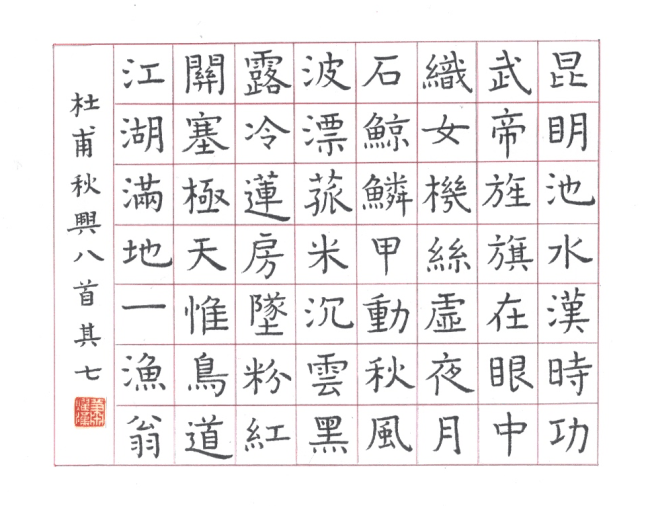 昆眀池水漢時功
武帝旌旗在眼中
織女機絲虛夜月
石鯨鱗甲動秋風
波漂菰米沉雲黑
露冷蓮房墜粉紅
關塞極天惟鳥道
江湖滿地一漁翁
杜甫秋興八首其七